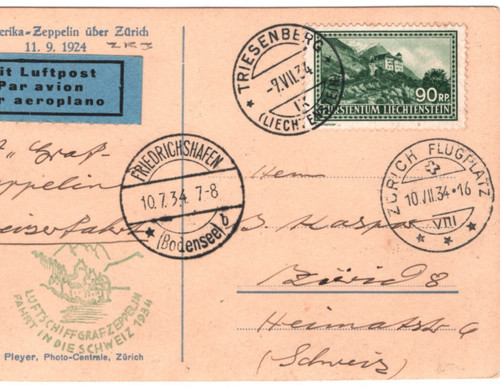 erika-Zeppelin über Zürich
11. 9. 1924
it Luftpost
Par avion
r aeroplano
TRIESENBERG
-9.VII.34
(LIECHTENSTEIN)
90 RP.
FÜRSTENTUM LIECHTENSTEIN
Graf-
eppelin
FRIEDRICHSHAFEN
10.7.34. 7-8
(Bodensee) b
ZÜRICH FLUGPLATZ
10.VII.34·16
VIII
Herrn
Zürich 8
Heimatstr 6
(Schweiz)
LUFTSCHIFF GRAF ZEPPELIN
FAHRT IN DIE SCHWEIZ 1934
Pleyer, Photo-Centrale, Zürich